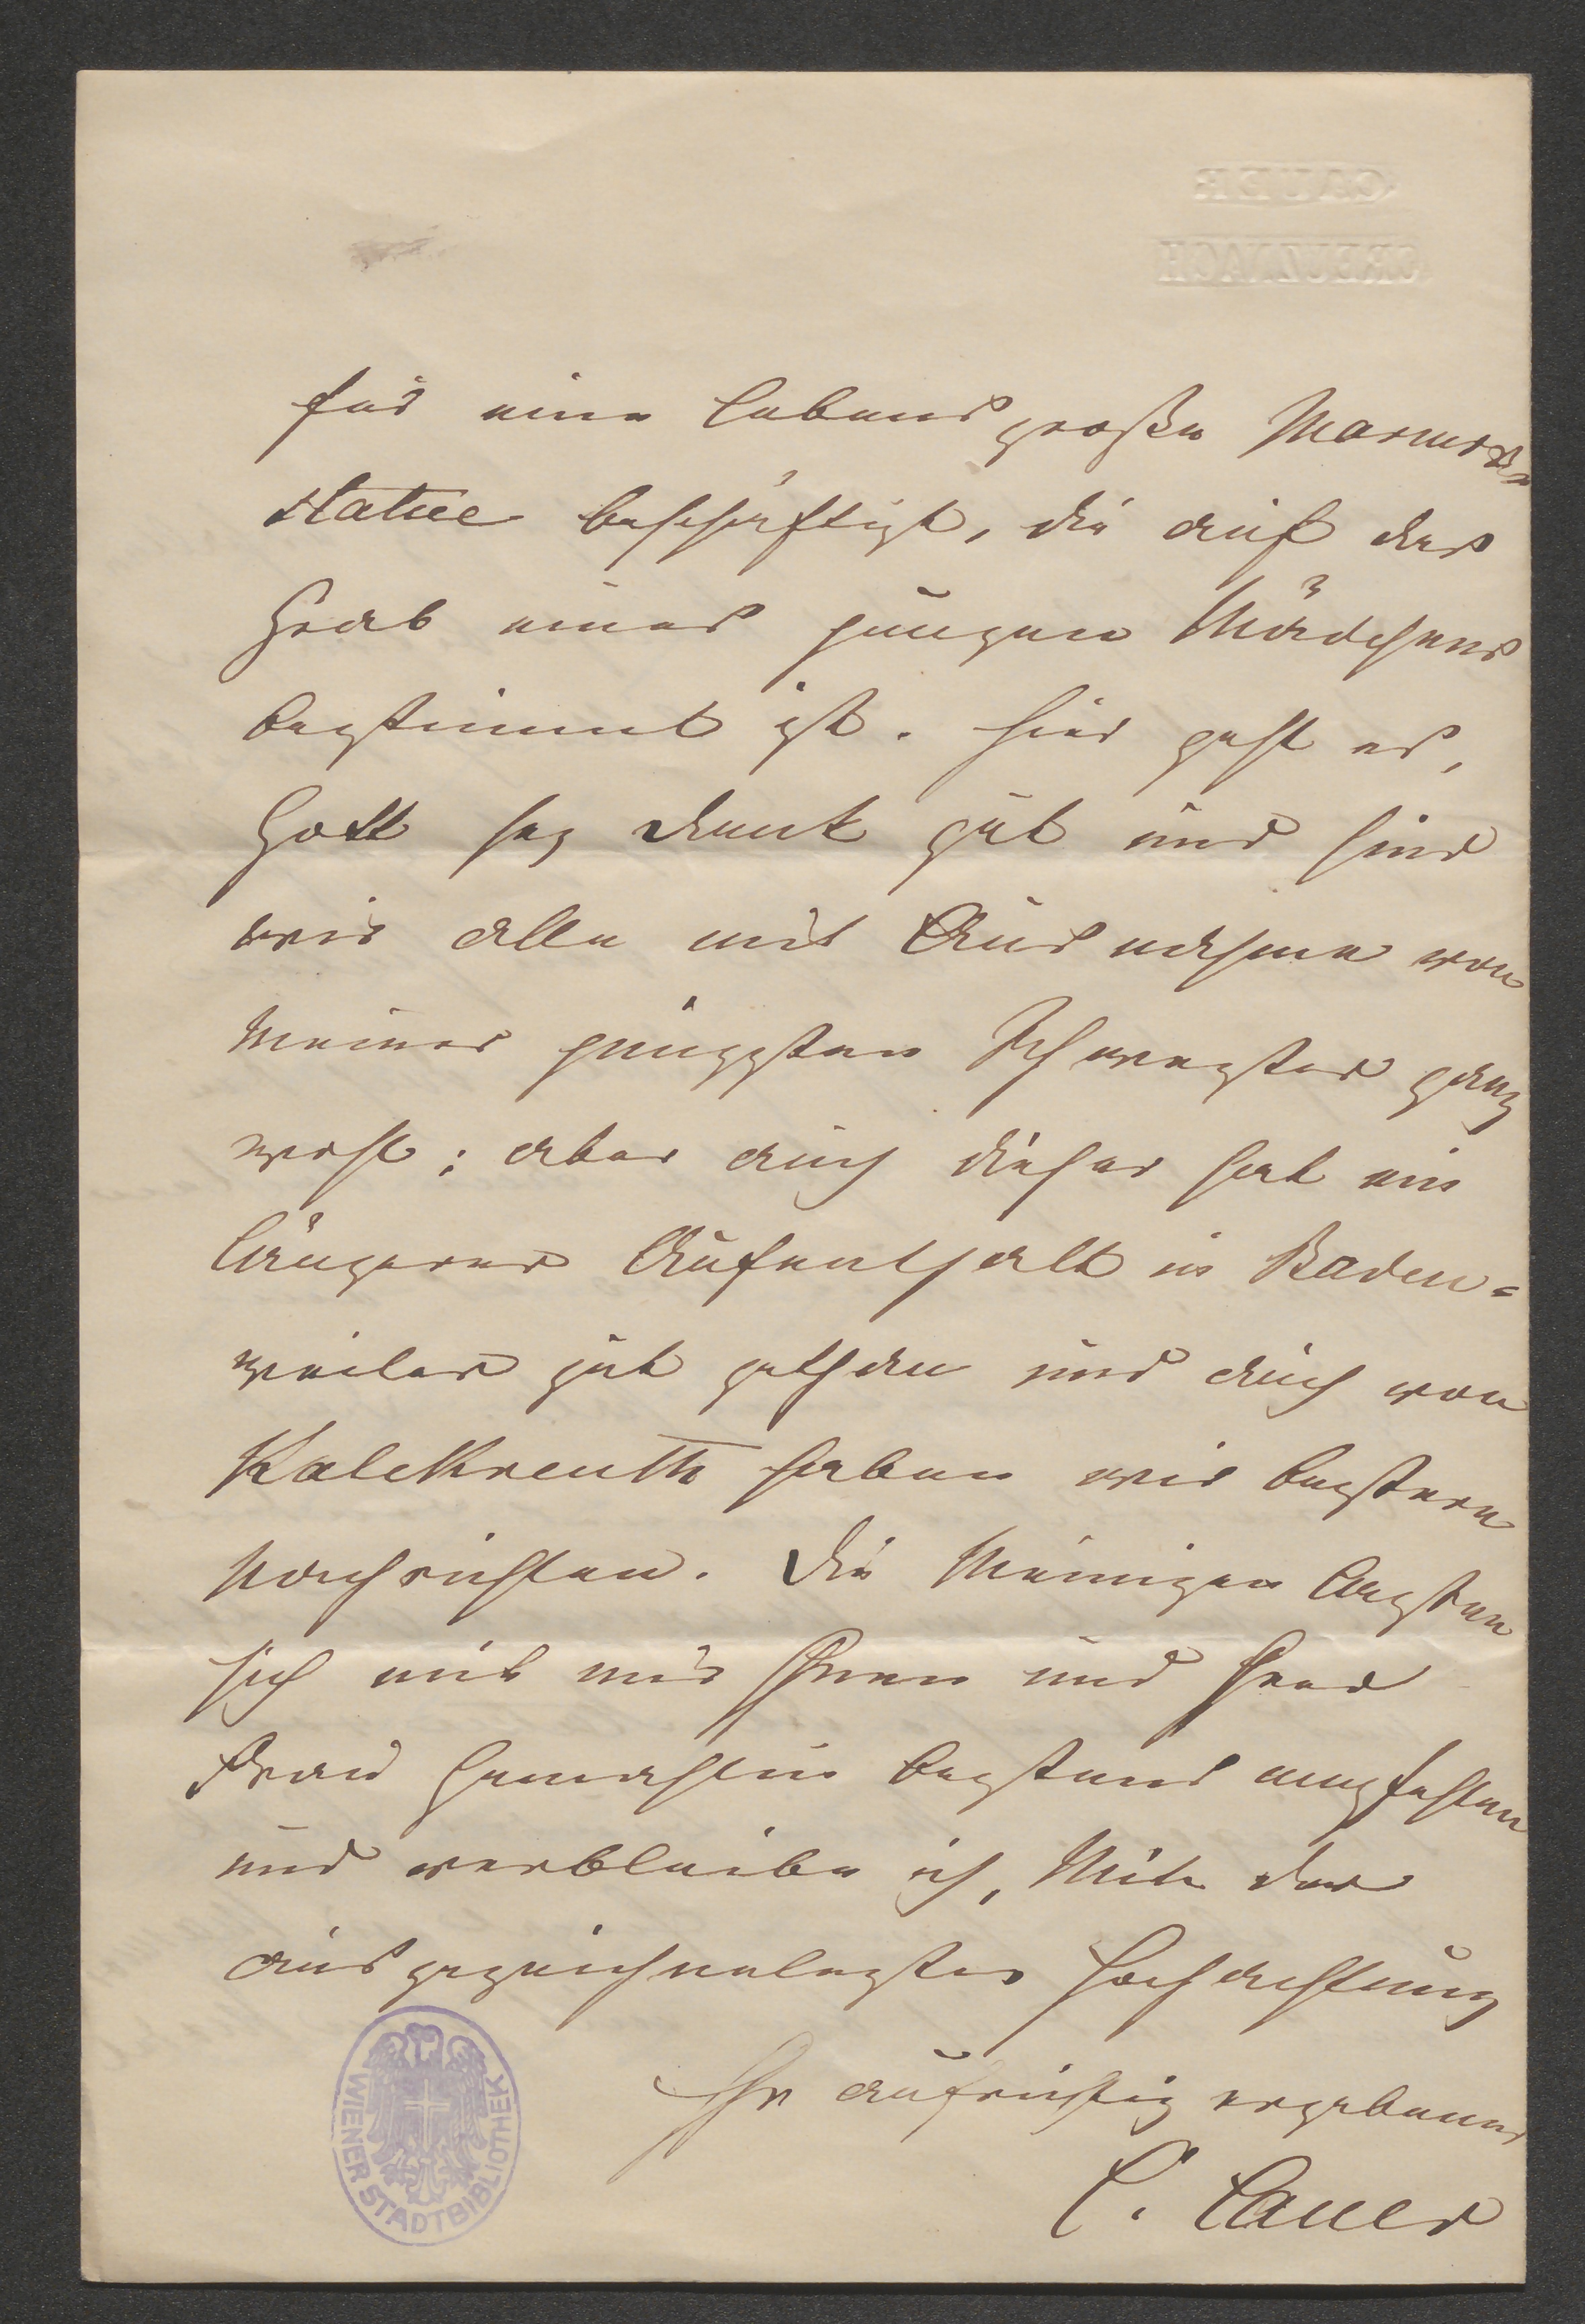 CAUER
CREUZNACH
für eine lebensgroße Marmor
statue beschäftigt, die auf das
Grab eines jungen Mädchens
bestimmt ist. Hier geht es,
Gott sey dank gut und sind
wir alle mit Ausnahme von
meiner jüngsten Schwester ganz
wohl; aber auch dieser hat ein
längerer Aufenthalt in Baden=
weiler gut gethan und auch von
Kalckreuth haben wir bessere
Nachrichten. Die Meinigen lassen
sich mit mir Ihnen und Ihrer
Frau Gemahlin bestens empfehlen
und verbleibe ich, Mit der
ausgezeichnetesten Hochachtung
Ihr aufrichtig ergebener
C. Cauer
WIENER STADTBIBLIOTHEK